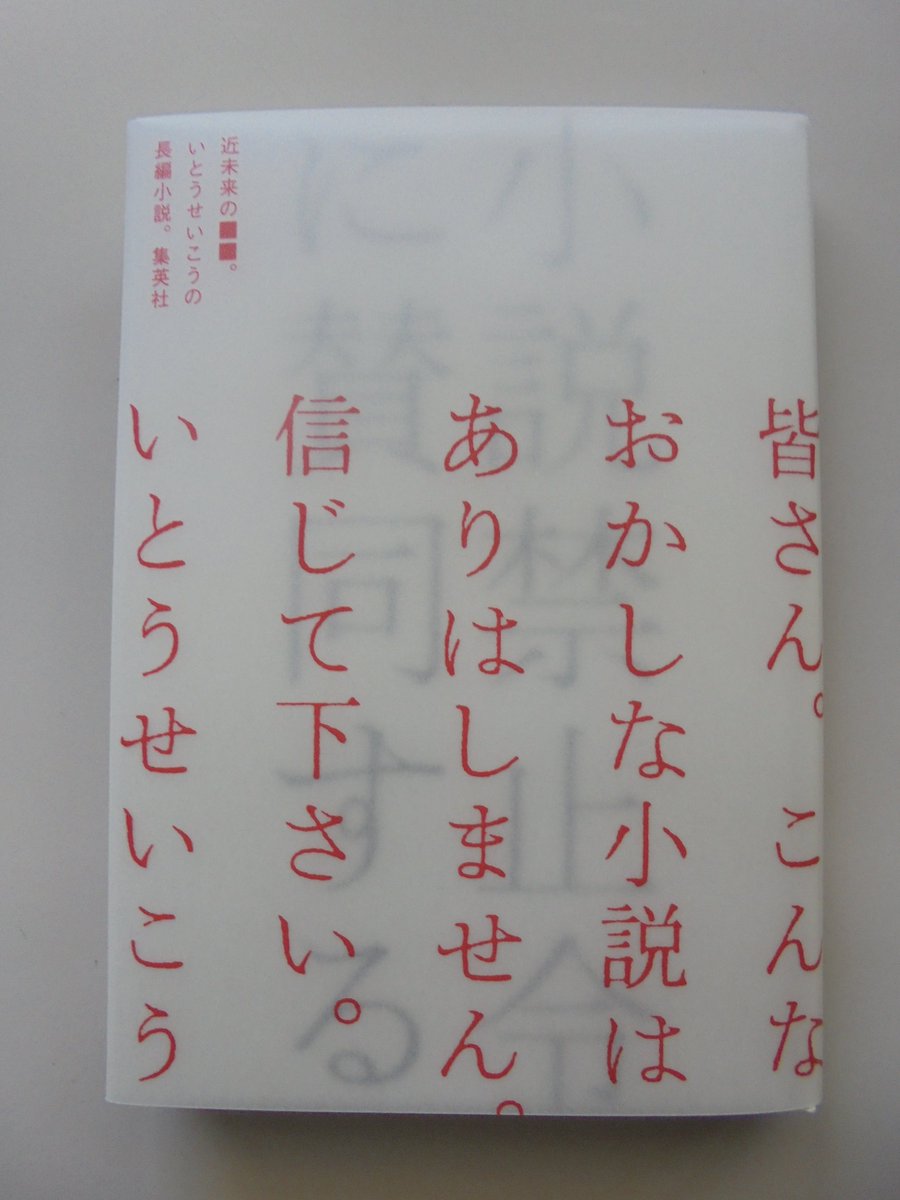 皆さん。こんな
おかしな小説は
ありはしません。
信じて下さい。
いとうせいこう
小説禁止令
に賛同する
近未来の■■。
いとうせいこうの
長編小説。集英社